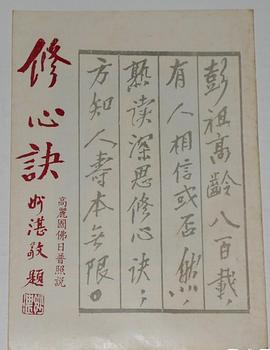 彭祖高齡八百載，
有人相信或否然，
熟读深思修心訣；
方知人壽本無限。
高麗國佛日普照説
修心訣
湛敬題